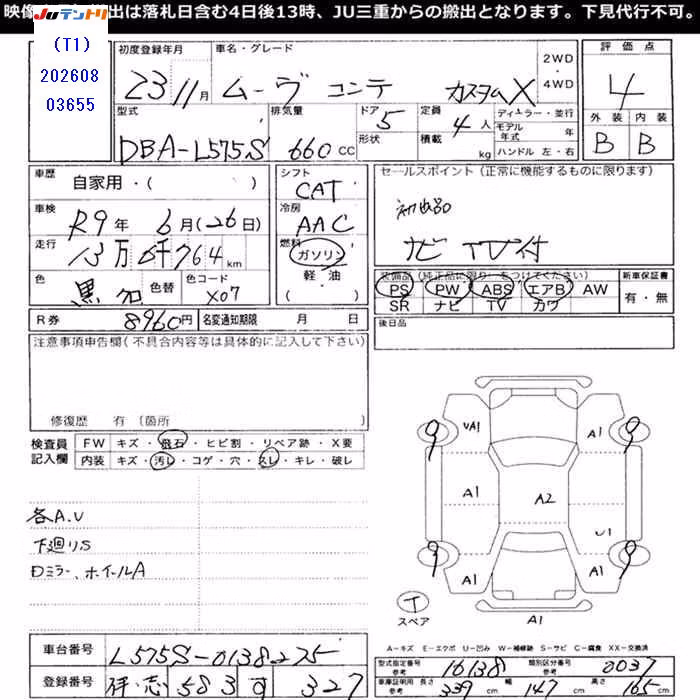 映像 出は落札日含む4日後13時、JU三重からの搬出となります。下見代行不可。
JUテントリ
(T1)
202608
03655
初度登録年月
23 11月
車名・グレード
ムーヴ コンテ カスタムX
2WD
・
4WD
評価点
4
外装 内装
B B
型式
DBA-L575S
排気量
660 cc
ドア
5
形状
定員
4人
積載
kg
ディーラー・並行
モデル年式 年
ハンドル 左・右
車歴
自家用・( )
車検
R9年 6月(26日)
走行
13万6千764km
色
黒
色替
色コード
X07
シフト
CAT
冷房
AAC
燃料
ガソリン
軽・油
( )
セールスポイント(正常に機能するものに限ります)
ナビ TV付
PS PW ABS エアB AW
SR ナビ TV カワ
新車保証書
有・無
R券
8960円
名変通知期限 月 日
後日品
注意事項申告欄(不具合内容等は具体的に記入して下さい)
修復歴 有(箇所
検査員
記入欄
FW キズ・飛石・ヒビ割・リペア跡・X要
内装 キズ・汚レ・コゲ・穴・スレ・キレ・破レ
各A.U
下廻りS
Dミラー、ホイールA
9
UA1
A1
9
A1
A2
U1
9
A1
A1
9
T
スペア
A1
A-キズ E-エクボ U-凹み W-補修跡 S-サビ C-腐食 XX-交換済
車台番号
L575S-0138275
登録番号
583 す 327
型式指定番号
参考
16138
類別区分番号
参考
0037
車庫証明用
参考
長さ
339cm
幅
147cm
高さ
165cm